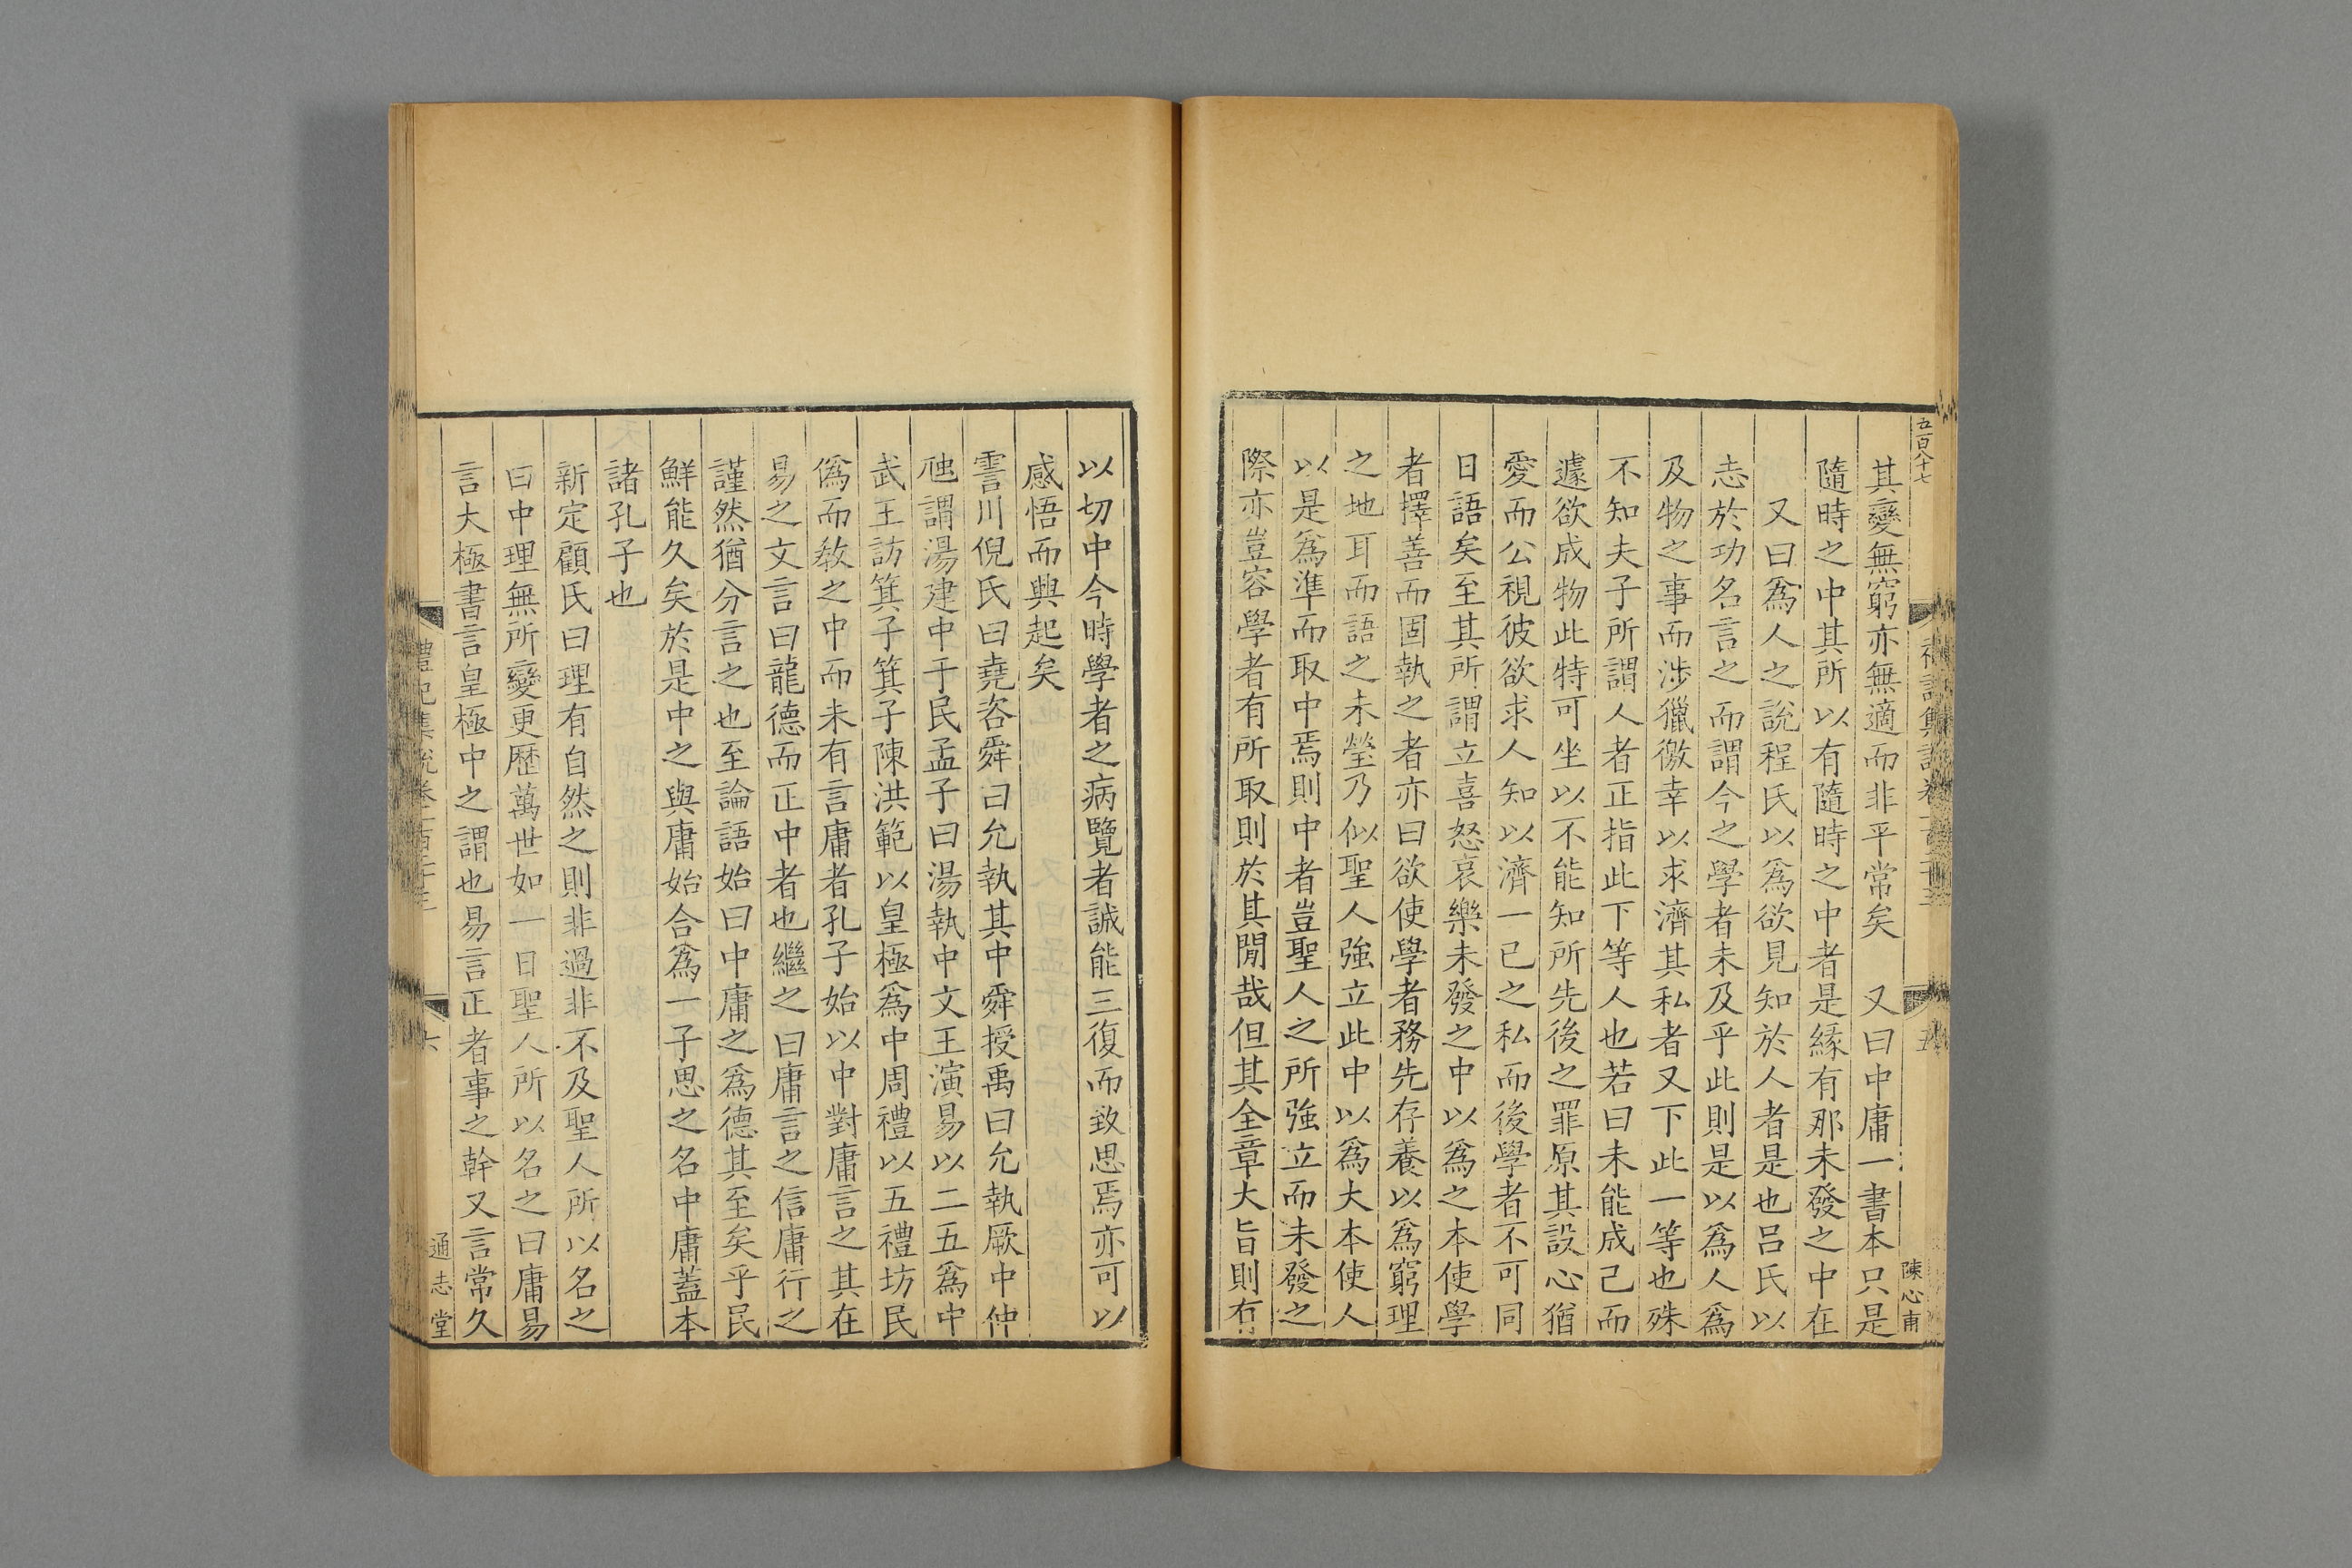 五百八十七
陳心甫
其變無窮亦無適而非平常矣　又曰中庸一書本只是
隨時之中其所以有隨時之中者是緣有那未發之中在
又曰爲人之說程氏以爲欲見知於人者是也呂氏以
志於功名言之而謂今之學者未及乎此則是以爲人爲
及物之事而涉獵徼幸以求濟其私者又下此一等也殊
不知夫子所謂人者正指此下等人也若曰未能成己而
遽欲成物此特可坐以不能知所先後之罪原其設心猶
愛而公視彼欲求人知以濟一己之私而後學者不可同
日語矣至其所謂立喜怒哀樂未發之中以爲之本使學
者擇善而固執之者亦曰欲使學者務先存養以爲窮理
之地耳而語之未瑩乃似聖人強立此中以爲大本使人
以是爲準而取中焉則中者豈聖人之所強立而未發之
際亦豈容學者有所取則於其閒哉但其全章大旨則有
以切中今時學者之病覽者誠能三復而致思焉亦可以
感悟而興起矣
霅川倪氏曰堯咨舜曰允執其中舜授禹曰允執厥中仲
虺謂湯建中于民孟子曰湯執中文王演易以二五爲中
武王訪箕子箕子陳洪範以皇極爲中周禮以五禮坊民
僞而敎之中而未有言庸者孔子始以中對庸言之其在
易之文言曰龍德而正中者也繼之曰庸言之信庸行之
謹然猶分言之也至論語始曰中庸之爲德其至矣乎民
鮮能久矣於是中之與庸始合爲一子思之名中庸蓋本
諸孔子也
新定顧氏曰理有自然之則非過非不及聖人所以名之
曰中理無所變更歷萬世如一日聖人所以名之曰庸易
言大極書言皇極中之謂也易言正者事之幹又言常久
禮記集說卷一百二十三
六
通志堂